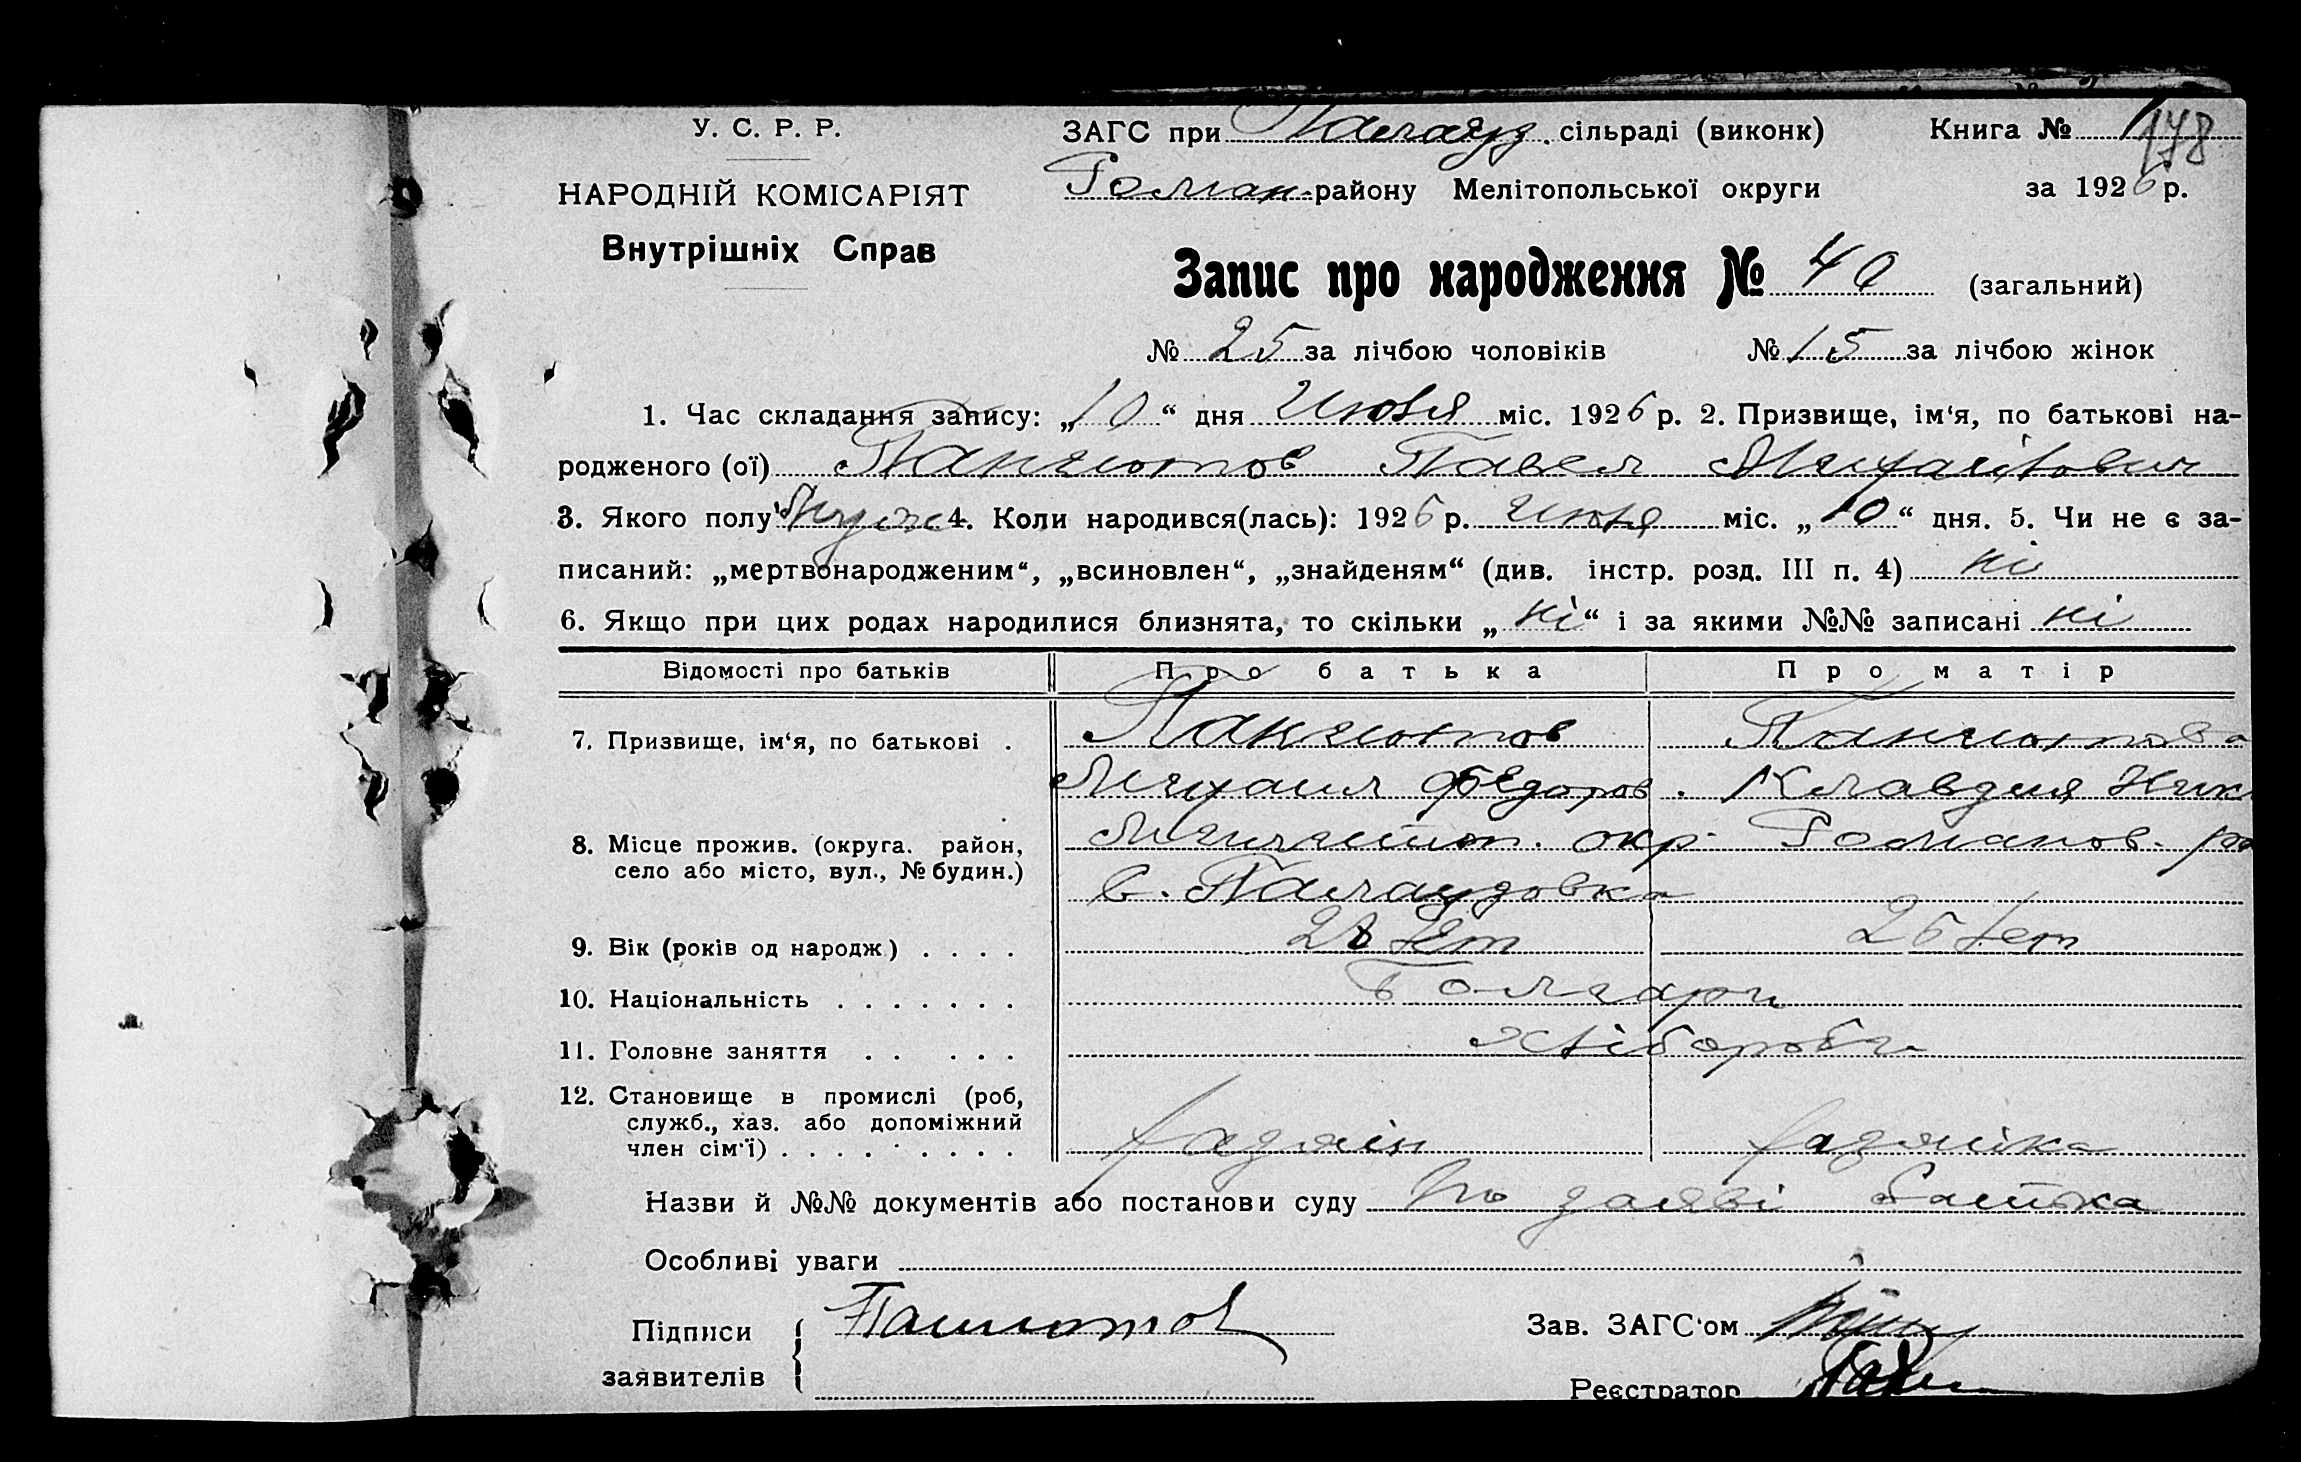 У. С. Р. Р.
НАРОДНІЙ КОМІСАРІЯТ
Внутрішніх Справ
ЗАГС при Палауз. сільраді (виконк) Книга № 178
Роман. району Мелітопольської округи за 1926 р.
Запис про народження № 40 (загальний)
№ 25 за лічбою чоловіків № 15 за лічбою жінок
1. Час складання запису: „10“ дня Июля міс. 1926 р. 2. Призвище, ім‘я, по батькові на-
родженого (ої) Панчютов Павел Михайлович
3. Якого полу Муж 4. Коли народився(лась): 1926 р. июля міс. „10“ дня. 5. Чи не є за-
писаний: „мертвонародженим“, „всиновлен“, „знайденям“ (див. інстр. розд. III п. 4) ні
6. Якщо при цих родах народилися близнята, то скільки „ні“ і за якими №№ записані ні
Відомості про батьків Про батька Про матір
7. Призвище, ім‘я, по батькові . Панчютов Панчютова
Михаил Федоров. Клавдия Ник
8. Місце прожив. (округа. район, село або місто, вул., № будин.) окр. Романов. ра
с. Палаузовка
9. Вік (років од народж.) . . . . 28 лет 26 лет
10. Національність . . . . . . . Болгари
11. Головне заняття . . . . . Хлібороби
12. Становище в промислі (роб, служб., хаз. або допоміжний член сім‘ї) . . . . . . . . . хазяін хазяйка
Назви й №№ документів або постанови суду По заяві батька
Особливі уваги
Підписи заявителів
Зав. ЗАГС‘ом
Реєстратор